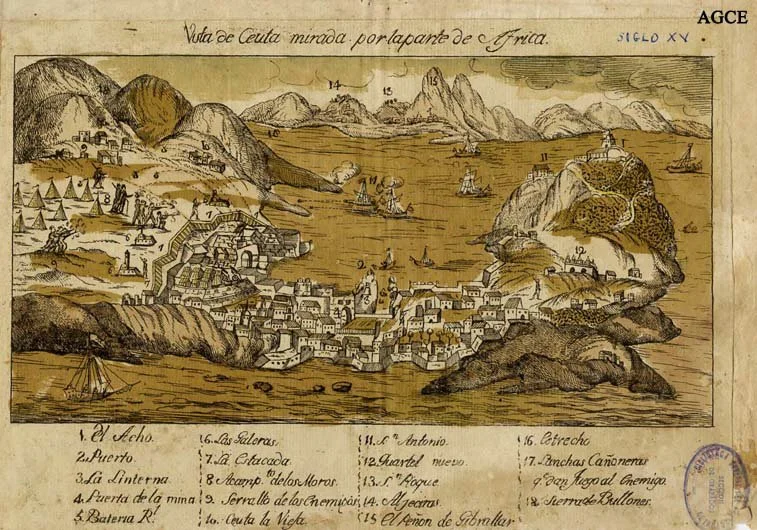 AGCE
Vista de Ceuta mirada por la parte de Africa.
SIGLO XV
1. El Acho.
2. Puerto.
3. La Linterna
4. Puerta de la mina
5. Bateria Rl.
6. Las Galeras.
7. La Estacada.
8. Acampto. de los Moros.
9. Serrallo de los Enemigos
10. Ceuta la Vieja.
11. Sn. Antonio.
12. Quartel nuevo.
13. Sn. Roque.
14. Algeciras.
15. El Peñon de Gibraltar
16. Estrecho
17. Lanchas Cañoneras
q. dan fuego al Enemigo.
18. Sierra de Bullones.